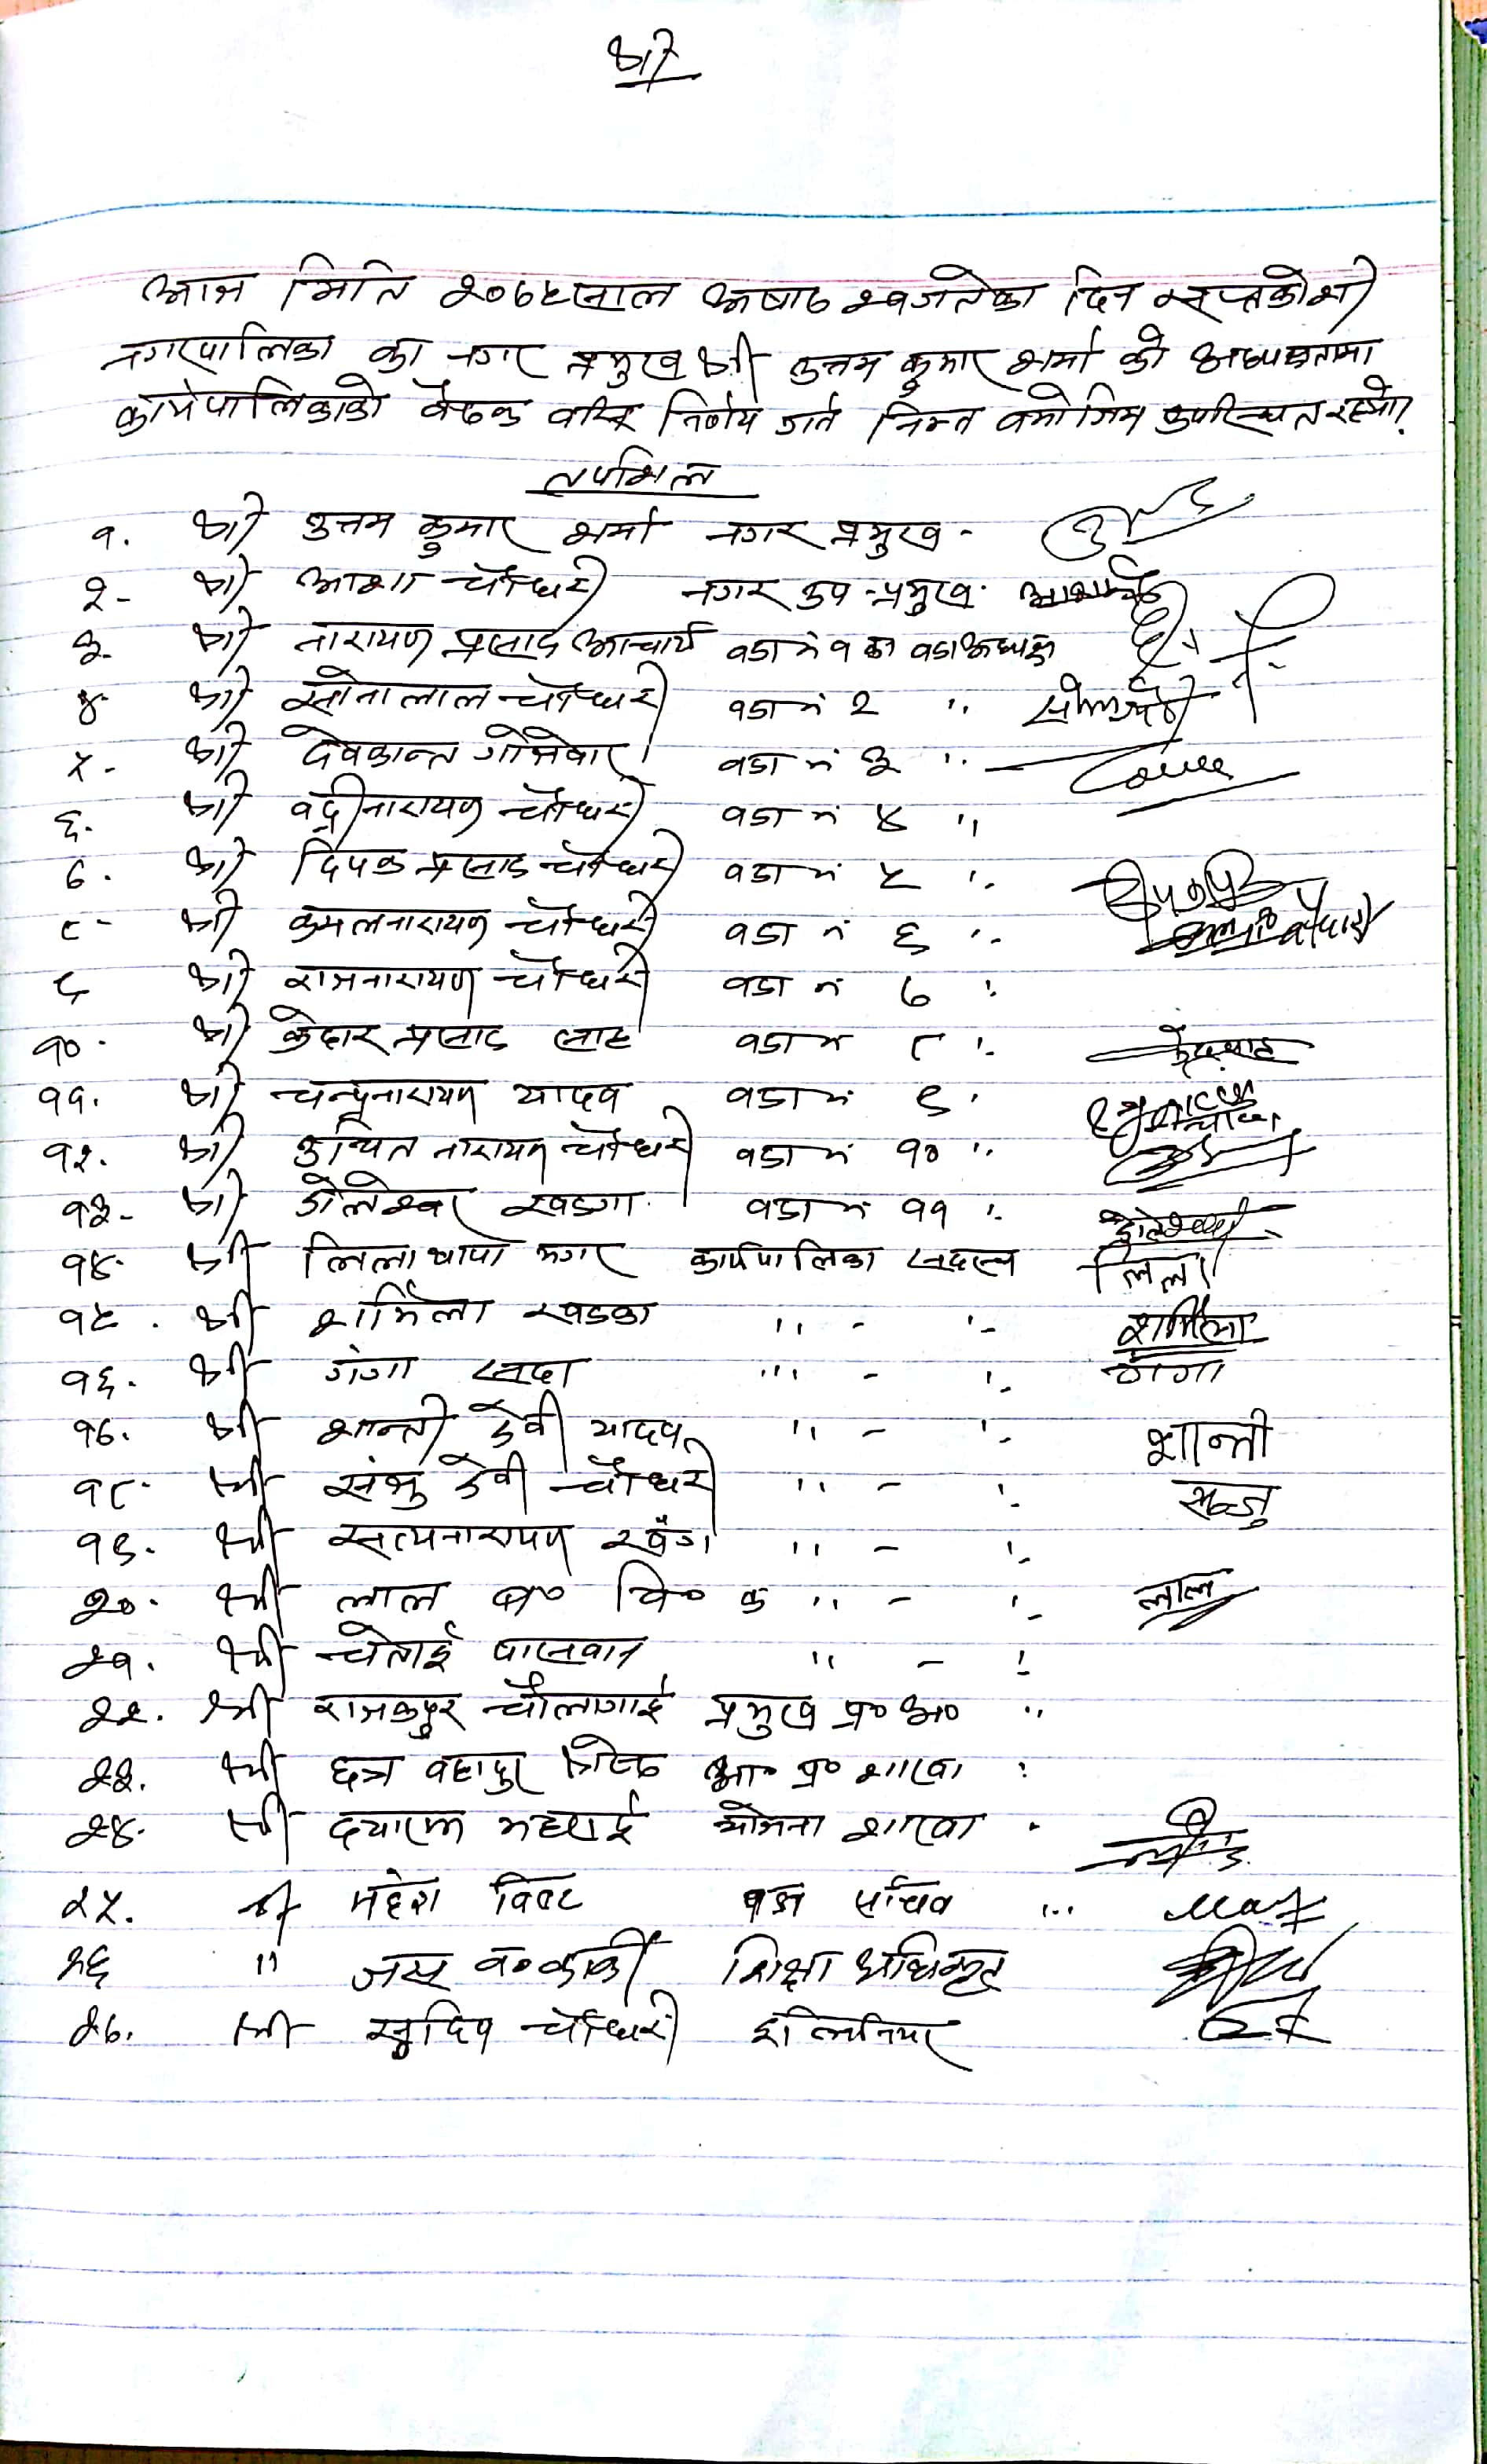 श्री
आज मिति २०७५साल अषाढ २७गतेका दिन सप्तकोशी
नगरपालिका का नगर प्रमुख श्री उत्तम कुमार शर्मा को अध्यक्षतामा
कार्यपालिकाको बैठक बसि निर्णय गर्न निम्न बमोजिम उपस्थित रहयो।
तपशिल
१. श्री उत्तम कुमार शर्मा नगर प्रमुख -
२- श्री आशा चौधरी नगर उप-प्रमुख.
३- श्री नारायण प्रसाद आचार्य वडा नं १ का वडाअध्यक्ष
४- श्री सोनालाल चौधरी वडा नं २ "
५- श्री देवकान्त गोजेवार वडा नं ३ "
६. श्री वद्रीनारायण चौधरी वडा नं ४ "
७. श्री दिपक प्रसाद चौधरी वडा नं ५ "
८- श्री कमलनारायण चौधरी वडा नं ६ "
९ श्री राजनारायण चौधरी वडा नं ७ "
१०. श्री केदार प्रसाद साह वडा नं ८ "
११. श्री चन्द्रनारायण यादव वडा नं ९ "
१२. श्री उचित नारायण चौधरी वडा नं १० "
१३- श्री शैलेश्वर खडगा वडा नं ११ "
१४. श्री लिला थापा मगर कार्यपालिका सदस्य लिला
१५. श्री शर्मिला खडका " - " शर्मिला
१६. श्री गंगा सदा " - " गंगा
१७. श्री शान्ती देवी यादव " - " शान्ती
१८. श्री संजु देवी चौधरी " - " सन्जु
१९. श्री सत्यनारायण खँग " - "
२०. श्री लाल ब० वि० क " - " लाल
२१. श्री चेताई पासवान " - "
२२. श्री राजकपुर चौलागाई प्रमुख प्र० अ० "
२३. श्री छत्र बहादुर श्रेष्ठ आ० प्र० शाखा "
२४. श्री दयाराम भट्टराई योजना शाखा "
२५. श्री महेश विष्ट वडा सचिव "
२६ " जस ब० कार्की शिक्षा अधिकृत
२७. श्री सुदिप चौधरी इन्जिनियर